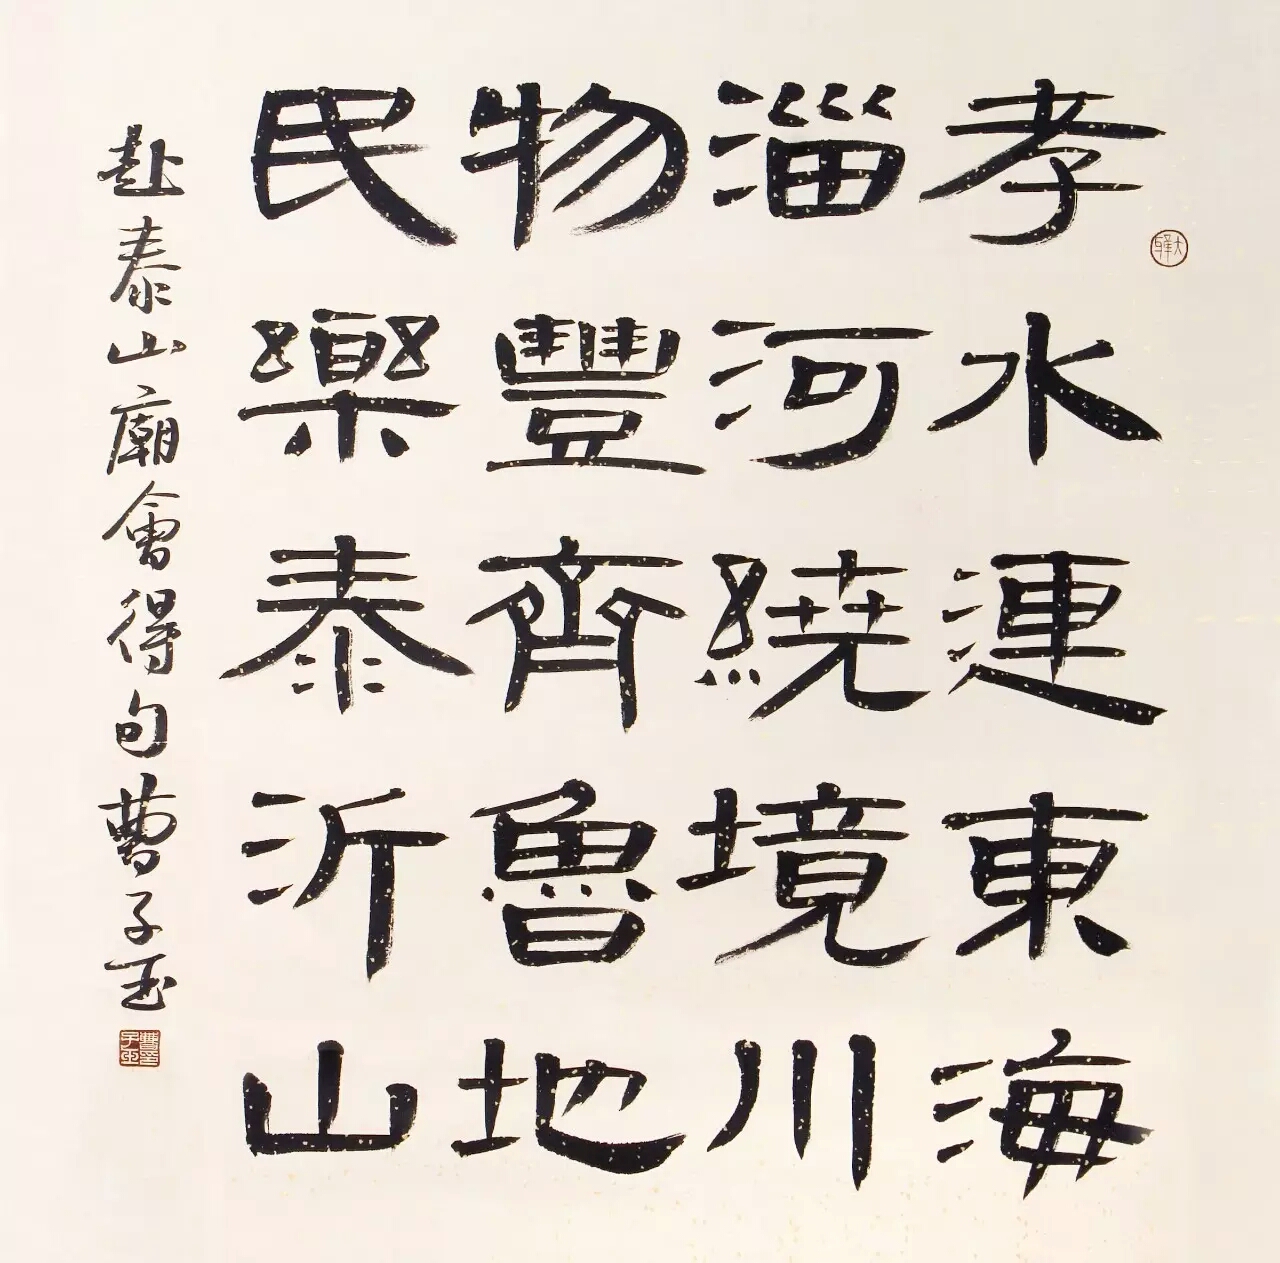 孝水連東海
淄河繞境川
物豐齊魯地
民樂泰沂山
赴泰山廟會得句曹子玉
曹子玉印